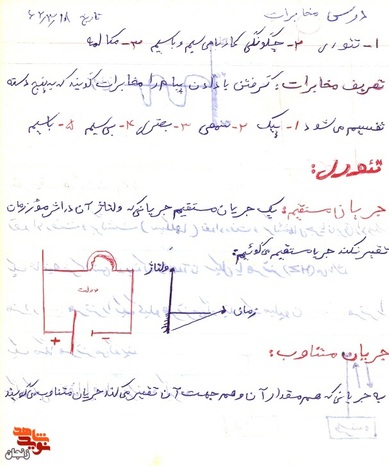 درس مخابرات تاریخ ۶۲/۳/۱۸
۱- تئوری ۲- چگونگی کار با بی‌سیم و باسیم ۳- مکالمه
تعریف مخابرات: گرفتن یا دادن پیام را مخابرات گویند که به پنج دسته
تقسیم می‌شود ۱- پیک ۲- صوتی ۳- بصری ۴- بی‌سیم ۵- باسیم
تئوری:
جریان مستقیم: یک جریان مستقیم جریانی که ولتاژ آن در اثر مرور زمان
تغییر نکند جریان مستقیم می‌گوئیم:
ولتاژ
زمان
+ -
جریان متناوب:
به جریانی که هم مقدار آن و هم جهت آن تغییر می‌کند جریان متناوب می‌گویند
نوید شاهد
زنجان